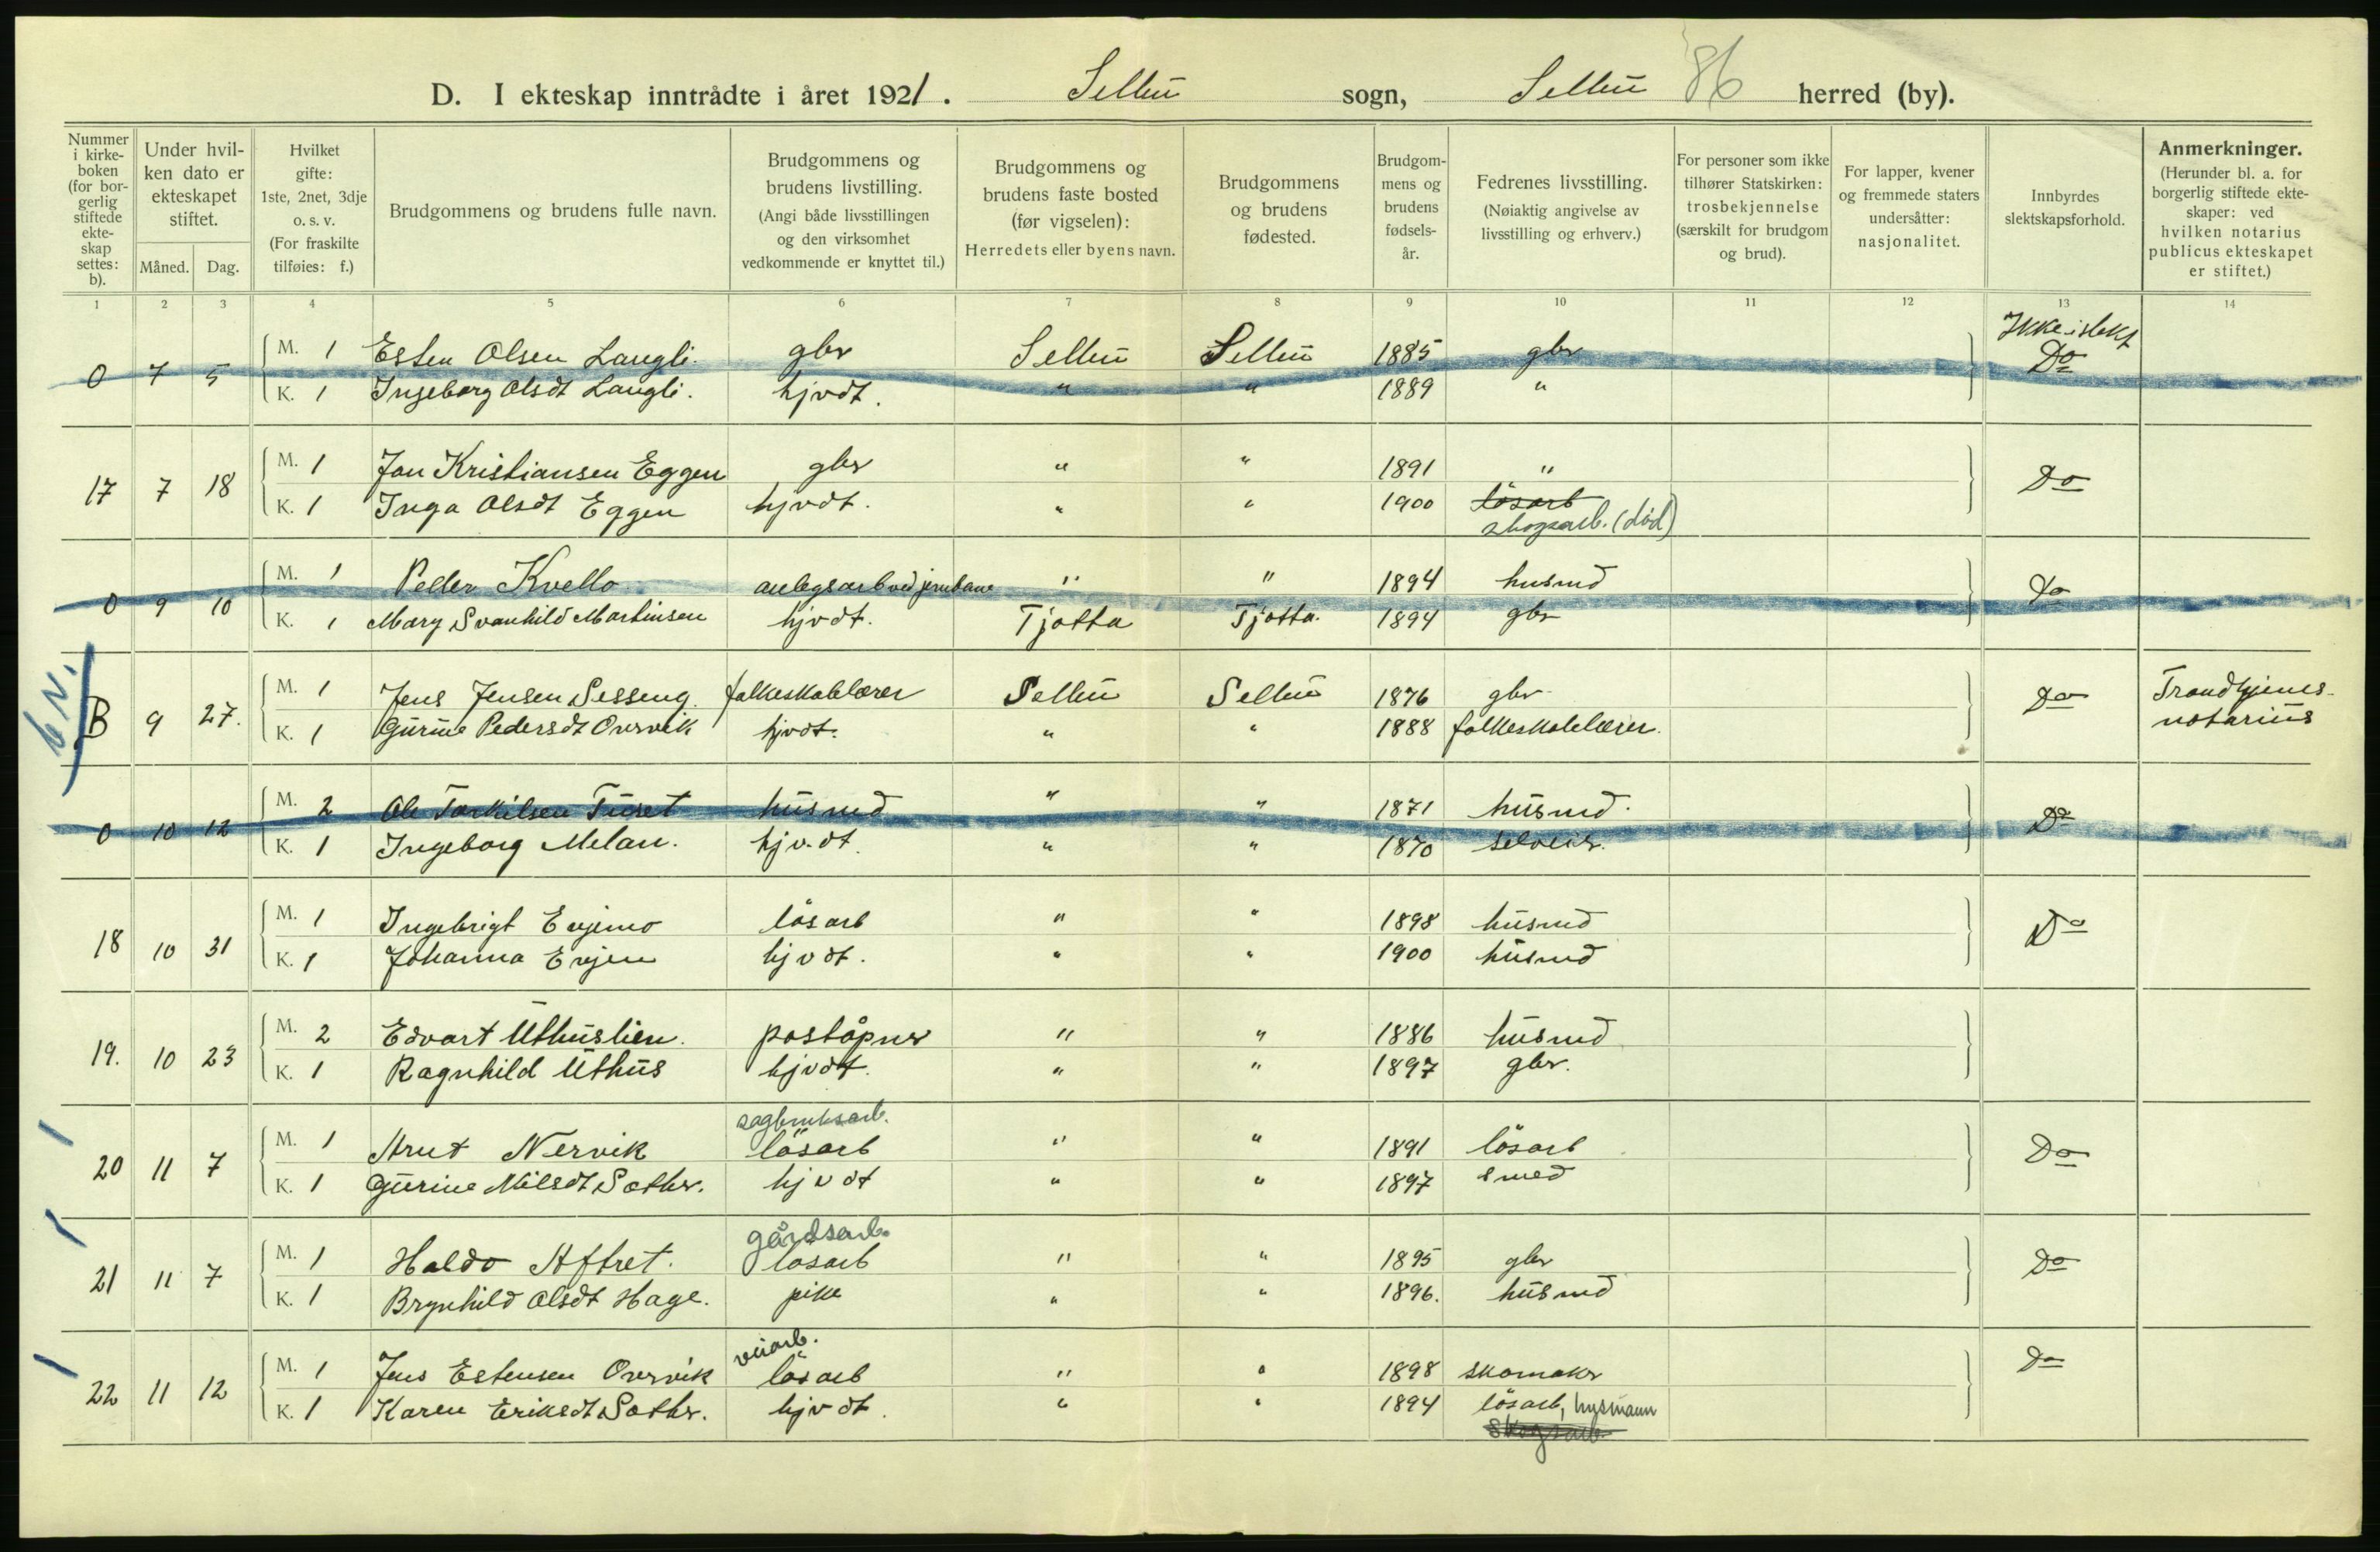 D. I ekteskap inntrådte i året 1921. Selbu sogn, Selbu 86 herred (by).
Nummer i kirke-boken (for bor-gerlig stiftede ekte-skap settes: b).
Under hvil-ken dato er ekteskapet stiftet.
Måned. Dag.
Hvilket gifte: 1ste, 2net, 3dje o. s. v. (For fraskilte tilføies: f.)
Brudgommens og brudens fulle navn.
Brudgommens og brudens livstilling. (Angi både livsstillingen og den virksomhet vedkommende er knyttet til.)
Brudgommens og brudens faste bosted (før vigselen): Herredets eller byens navn.
Brudgommens og brudens fødested.
Brudgom-mens og brudens fødsels-år.
Fedrenes livsstilling. (Nøiaktig angivelse av livsstilling og erhverv.)
For personer som ikke tilhører Statskirken: trosbekjennelse (særskilt for brudgom og brud).
For lapper, kvener og fremmede staters undersåtter: nasjonalitet.
Innbyrdes slektskapsforhold.
Anmerkninger. (Herunder bl. a. for borgerlig stiftede ekte-skaper: ved hvilken notarius publicus ekteskapet er stiftet.)
1 2 3 4 5 6 7 8 9 10 11 12 13 14
0 7 5 M. 1 Esten Olsen Langli. gbr Selbu Selbu 1885 gbr Ikke i slekt Do
K. 1 Ingeborg Olsdt Langli. hjvdt. " " 1889 "
17 7 18 M. 1 Jon Kristiansen Eggen gbr " " 1891 " Do
K. 1 Inga Olsdt Eggen hjvdt. " " 1900 lösarb
skogsarb. (död)
0 9 10 M. 1 Peder Kvello anlegsarb ved jernbane " " 1894 husmd Do
K. 1 Mary Svanhild Martinsen hjvdt. Tjøtta Tjøtta. 1894 gbr
B 9 27. M. 1 Jens Jensen Sesseng. folkeskolelærer Selbu Selbu 1876 gbr Do Trondhjems-
K. 1 Gurine Pedersdt Overvik hjvdt. " " 1888 folkeskolelærer. notarius
0 10 12 M. 2 Ole Torkilsen Tuset husmd " " 1871 husmd. Do
K. 1 Ingeborg Melan. hjv.dt. " " 1870 selveier.
18 10 31 M. 1 Ingebrigt Evjemo lösarb " " 1898 husmd Do
K. 1 Johanna Evjen hjvdt. " " 1900 husmd
19. 10 23 M. 2 Edvart Uthuslien. poståpner " " 1886 husmd
K. 1 Ragnhild Uthus hjvdt. " " 1897 gbr.
sagbruksarb.
20 11 7 M. 1 Arnt Nervik lösarb " " 1891 lösarb Do
K. 1 Gurine Nilsdt Sæther. hjvdt " " 1897 smed
gårdsarb.
21 11 7 M. 1 Haldo Aftret. løsarb " " 1895 gbr Do
K. 1 Brynhild Olsdt Hage. pike " " 1896. husmd
veiarb.
22 11 12 M. 1 Jens Estensen Overvik lösarb " " 1898 skomaker Do
K. 1 Karen Eriksdt Sæther. hjvdt. " " 1894 lösarb, husmann
skogsarb.